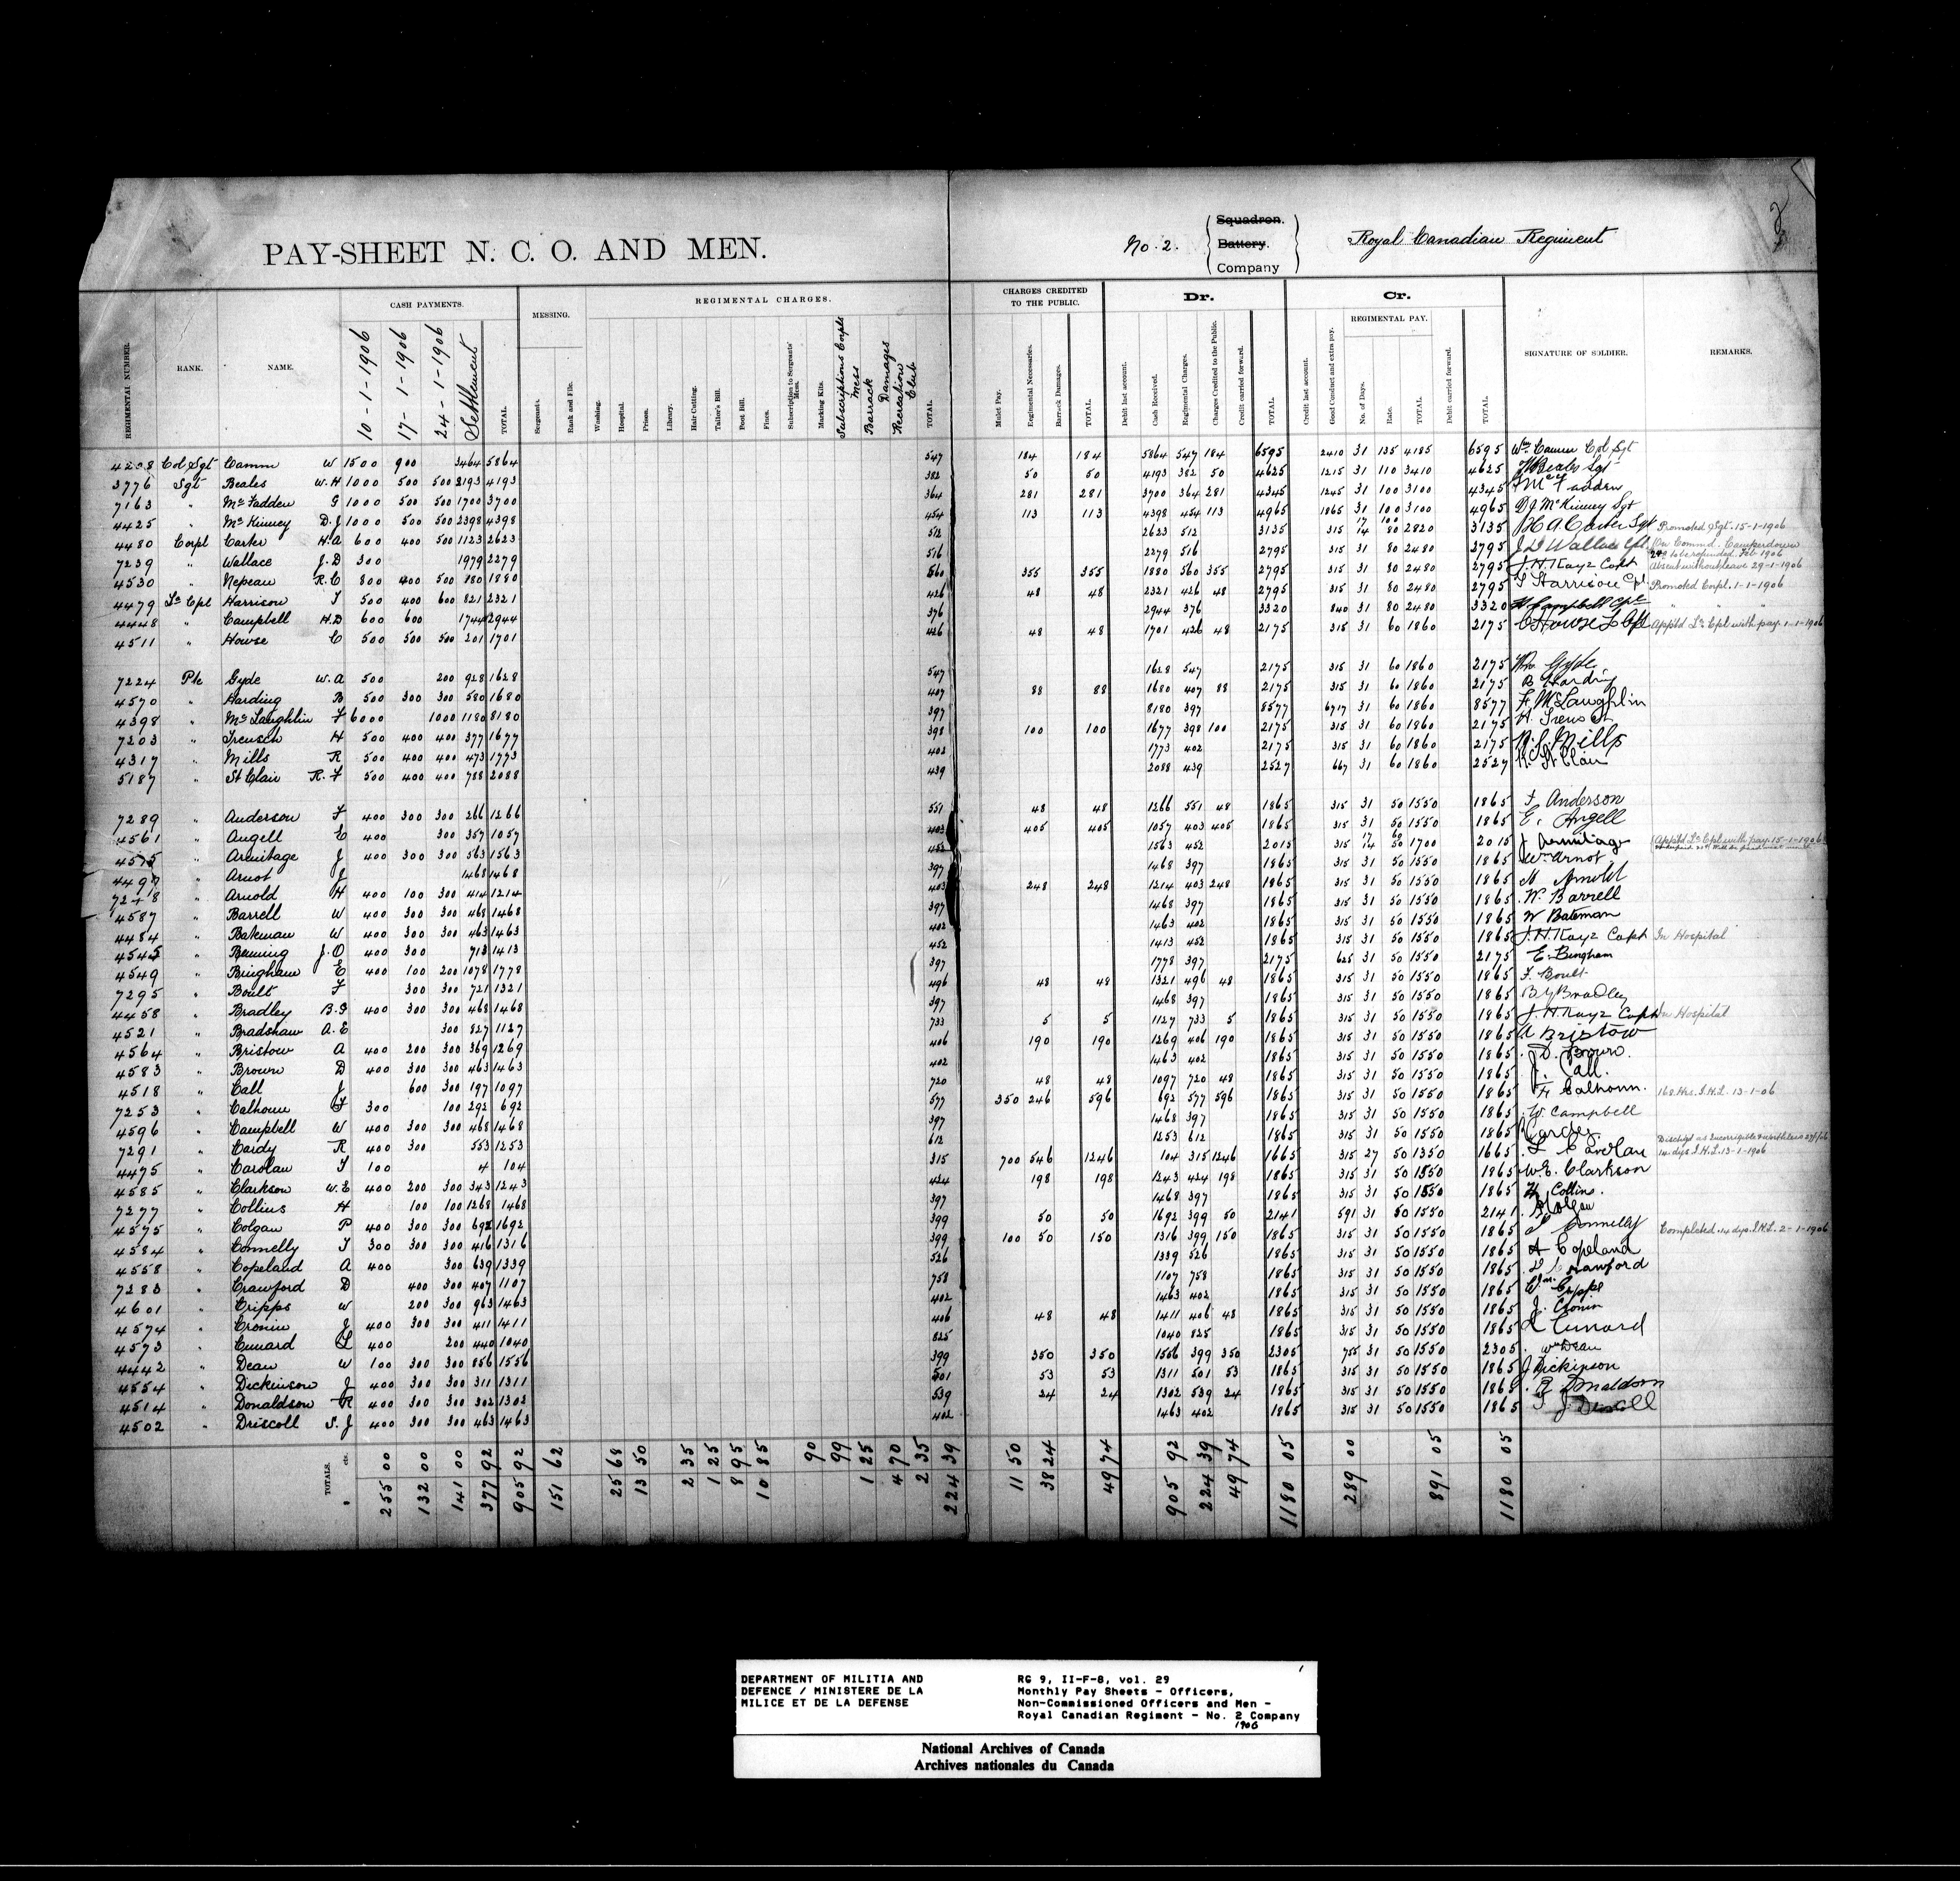 PAY-SHEET N. C. O. AND MEN.
No. 2. Squadron. Battery. Company Royal Canadian Regiment
REGIMENTAL NUMBER. RANK. NAME. CASH PAYMENTS. MESSING. REGIMENTAL CHARGES. CHARGES CREDITED TO THE PUBLIC. Dr. Cr. SIGNATURE OF SOLDIER. REMARKS.
REGIMENTAL PAY.
10-1-1906 17-1-1906 24-1-1906 Settlement TOTAL. Sergeants. Rank and File. Washing. Hospital. Prison. Library. Hair Cutting. Tailor's Bill. Boot Bill. Fines. Subscription to Sergeants' Mess. Marking Kits. Subscriptions Corpls Mess Barrack Damages Recreation Club TOTAL. Mulct Pay. Regimental Necessaries. Barrack Damages. TOTAL. Debit last account. Cash Received. Regimental Charges. Charges Credited to the Public. Credit carried forward. TOTAL. Credit last account. Good Conduct and extra pay. No. of Days. Rate. TOTAL. Debit carried forward. TOTAL.
4208 Col Sgt Camm W 1500 900 3464 5864 547 184 184 5864 547 184 6595 2410 31 135 4185 6595 Wm Camm Col Sgt
3776 Sgt Beales W.H 1000 500 500 2193 4193 382 50 50 4193 382 50 4625 1215 31 110 3410 4625
7163 " McFadden G 1000 500 500 1700 3700 364 281 281 3700 364 281 4345 1245 31 100 3100 4345
4425 " McKinney D.J 1000 500 500 2398 4398 454 113 113 4398 454 113 4965 1865 31 100 3100 4965 D J McKinney Sgt
4480 Corpl Carter H.A 600 400 500 1123 2623 512 2623 512 3135 315 17 14 100 80 2820 3135 H A Carter Sgt Promoted Sgt. 15-1-1906
7239 " Wallace J.D 300 1979 2279 516 2279 516 2795 315 31 80 2480 2795 J D Wallace Cpl. On Commd. Camperdown to be refunded Feb 1906
4530 " Nepean R.C 800 400 500 880 1880 560 355 355 1880 560 355 2795 315 31 80 2480 2795 J.H. Kaye Capt Absent without leave 29-1-1906
4479 Lce Cpl Harrison T 500 400 600 821 2321 426 48 48 2321 426 48 2795 315 31 80 2480 2795 T Harrison Cpl Promoted Corpl. 1-1-1906
4448 " Campbell H.D 600 600 1744 2944 376 2944 376 3320 840 31 80 2480 3320 H Campbell Cpl " " "
4511 " Howse C 500 500 500 201 1701 426 48 48 1701 426 48 2175 315 31 60 1860 2175 C Howse L Cpl Apptd Lce Cpl with pay. 1-1-1906
7224 Pte Gyde W.A 500 200 928 1628 547 1628 547 2175 315 31 60 1860 2175 Gyde
4570 " Harding B 500 300 300 580 1680 407 88 88 1680 407 88 2175 315 31 60 1860 2175 B Harding
4398 " McLaughlin F 6000 1000 1180 8180 397 8180 397 8577 6717 31 60 1860 8577 F. McLaughlin
7203 " Trensch H 500 400 400 377 1677 398 100 100 1677 398 100 2175 315 31 60 1860 2175
4317 " Mills R 500 400 400 473 1773 402 1773 402 2175 315 31 60 1860 2175 Mills
5187 " St Clair R.F 500 400 400 788 2088 439 2088 439 2527 667 31 60 1860 2527 R. St Clair
7289 " Anderson F 400 300 300 266 1266 551 48 48 1266 551 48 1865 315 31 50 1550 1865 F. Anderson
4561 " Angell E 400 300 357 1057 403 405 405 1057 403 405 1865 315 31 50 1550 1865 E. Angell
4575 " Armitage J 400 300 300 563 1563 452 1563 452 2015 315 17 14 60 50 1700 2015 J Armitage Apptd Lce Cpl with pay. 15-1-1906
4497 " Arnot J 1468 1468 397 1468 397 1865 315 31 50 1550 1865 Wm Arnot
7248 " Arnold H 400 100 300 414 1214 403 248 248 1214 403 248 1865 315 31 50 1550 1865 H. Arnold
4587 " Barrell W 400 300 300 468 1468 397 1468 397 1865 315 31 50 1550 1865 W. Barrell
4484 " Bateman W 400 300 300 463 1463 402 1463 402 1865 315 31 50 1550 1865 W Bateman
4545 " Benning J.O 400 300 713 1413 452 1413 452 1865 315 31 50 1550 1865 J.H. Kaye Capt In Hospital
4549 " Bingham E 400 100 200 1078 1778 397 1778 397 2175 625 31 50 1550 2175 E. Bingham
7295 " Boult F 300 300 721 1321 496 48 48 1321 496 48 1865 315 31 50 1550 1865 F. Boult
4458 " Bradley B.G 400 300 300 468 1468 397 1468 397 1865 315 31 50 1550 1865 B G Bradley
4521 " Bradshaw A.E 300 827 1127 733 5 5 1127 733 5 1865 315 31 50 1550 1865 J.H. Kaye Capt In Hospital
4564 " Bristow A 400 200 300 369 1269 406 190 190 1269 406 190 1865 315 31 50 1550 1865 A Bristow
4583 " Brown D 400 300 300 463 1463 402 1463 402 1865 315 31 50 1550 1865 D. Brown.
4518 " Call J 600 300 197 1097 720 48 48 1097 720 48 1865 315 31 50 1550 1865 J. Call.
7253 " Calhoun F 300 100 292 692 577 350 246 596 692 577 596 1865 315 31 50 1550 1865 F Calhoun. 168 Hrs. I.H.L. 13-1-06
4596 " Campbell W 400 300 300 468 1468 397 1468 397 1865 315 31 50 1550 1865 W. Campbell
7291 " Cardy R 400 300 553 1253 612 1253 612 1865 315 31 50 1550 1865 Dischgd as Incorrigible & worthless
4475 " Carolan T 100 4 104 315 700 546 1246 104 315 1246 1665 315 27 50 1350 1665 14 dys I.H.L. 13-1-1906
4585 " Clarkson W.E 400 200 300 343 1243 424 198 198 1243 424 198 1865 315 31 50 1550 1865 W.E. Clarkson
7277 " Collins H 100 100 1268 1468 397 1468 397 1865 315 31 50 1550 1865 H Collins.
4575 " Colgan P 400 300 300 692 1692 399 50 50 1692 399 50 2141 591 31 50 1550 2141 Colgan
4584 " Connelly T 300 300 300 416 1316 399 100 50 150 1316 399 150 1865 315 31 50 1550 1865 T Connelly Completed 14 dys. I.H.L. 2-1-1906
4558 " Copeland A 400 300 639 1339 526 1339 526 1865 315 31 50 1550 1865 A Copeland
7283 " Crawford D 400 300 407 1107 758 1107 758 1865 315 31 50 1550 1865 D Crawford
4601 " Cripps W 200 300 963 1463 402 1463 402 1865 315 31 50 1550 1865 Wm Cripps
4574 " Cronin J 400 300 300 411 1411 406 48 48 1411 406 48 1865 315 31 50 1550 1865 J. Cronin
4573 " Cunard L 400 200 440 1040 825 1040 825 1865 315 31 50 1550 1865 L Cunard
4442 " Dean W 100 300 300 856 1556 399 350 350 1556 399 350 2305 755 31 50 1550 2305 Wm Dean
4554 " Dickinson J 400 300 300 311 1311 501 53 53 1311 501 53 1865 315 31 50 1550 1865 J Dickinson
4514 " Donaldson R 400 300 300 302 1302 539 24 24 1302 539 24 1865 315 31 50 1550 1865 R Donaldson
4502 " Driscoll S.J 400 300 300 463 1463 402 1463 402 1865 315 31 50 1550 1865 J Driscoll
TOTALS. $ cts. 255 00 132 00 141 00 377 92 905 92 151 62 25 68 13 50 2 35 1 25 8 95 10 85 90 99 1 25 4 70 2 35 224 39 11 50 38 24 49 74 905 92 224 39 49 74 1180 05 289 00 891 05 1180 05
DEPARTMENT OF MILITIA AND
DEFENCE / MINISTERE DE LA
MILICE ET DE LA DEFENSE
RG 9, II-F-8, vol. 29
Monthly Pay Sheets - Officers,
Non-Commissioned Officers and Men -
Royal Canadian Regiment - No. 2 Company
1906
National Archives of Canada
Archives nationales du Canada